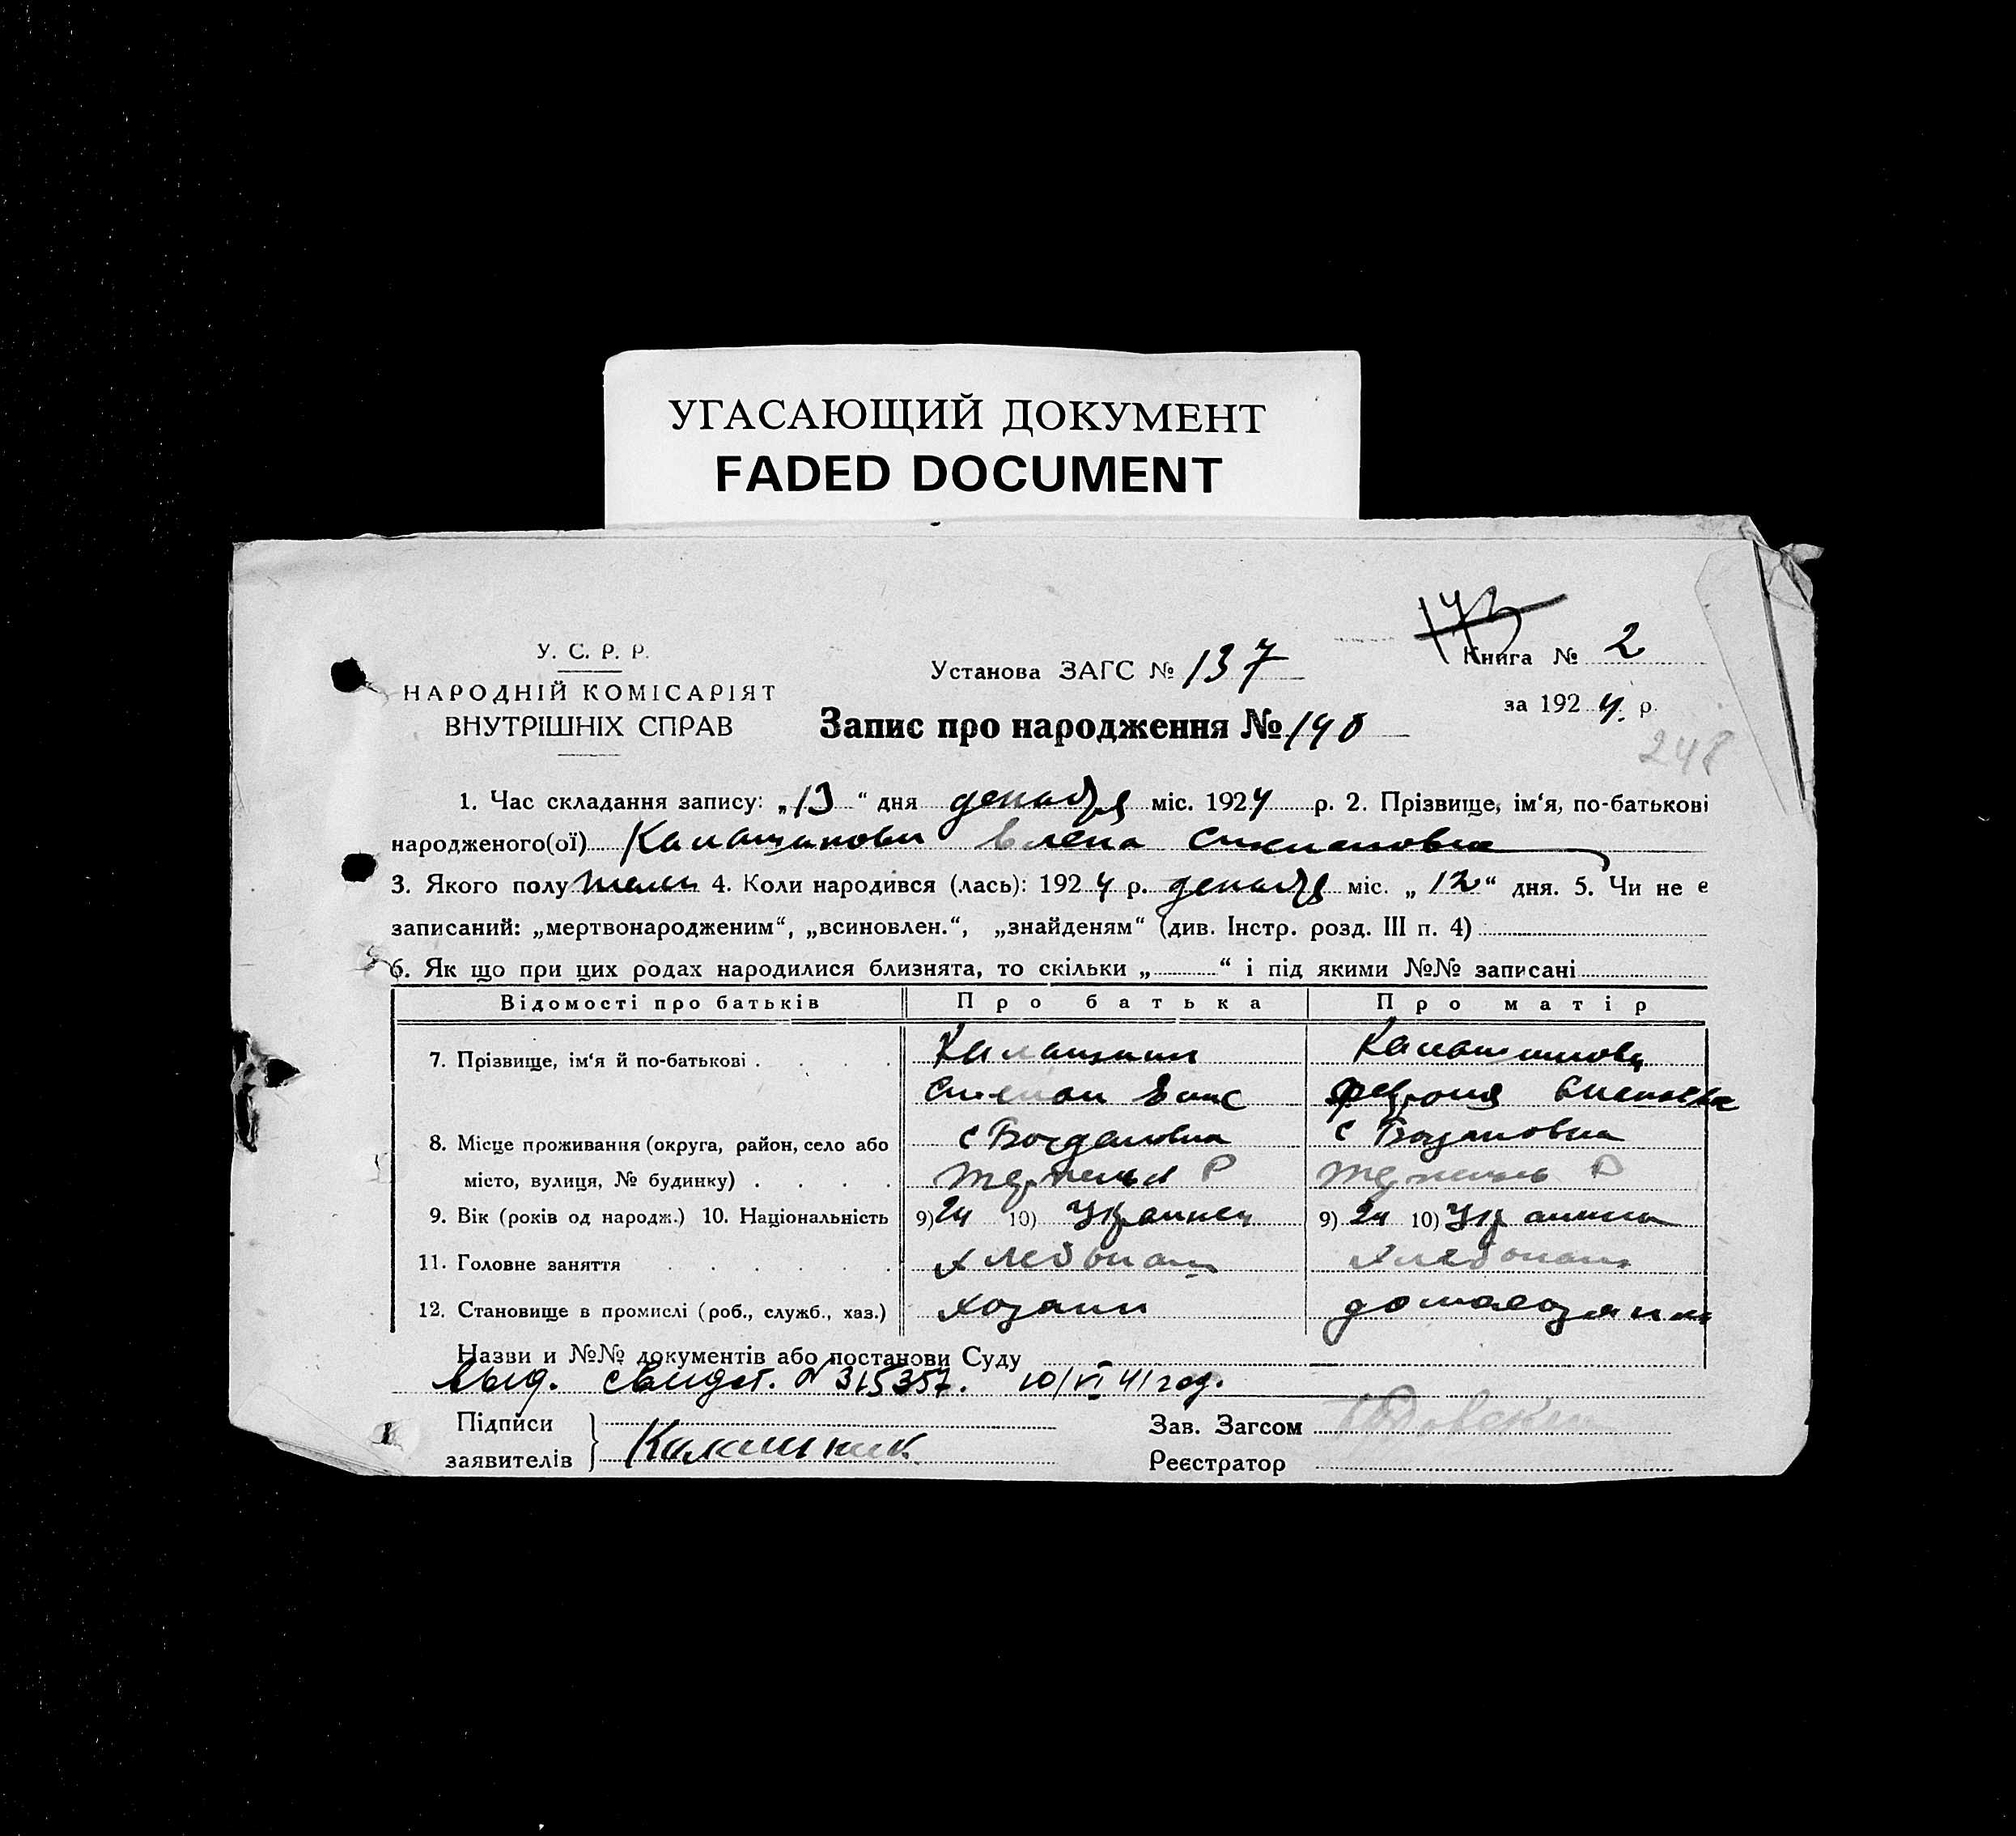 УГАСАЮЩИЙ ДОКУМЕНТ
FADED DOCUMENT
У. С. Р. Р.
НАРОДНІЙ КОМІСАРІЯТ
ВНУТРІШНІХ СПРАВ
Установа ЗАГС № 137
Запис про народження № 140
Книга № 2
за 1924. р.
248
1. Час складання запису: „13“ дня декабря міс. 1924 р. 2. Прізвище, ім‘я, по-батькові
народженого(ої) Елена
3. Якого полу 4. Коли народився (лась): 1924 р. декабря міс. „12“ дня. 5. Чи не є
записаний: „мертвонародженим“, „всиновлен.“, „знайденям“ (див. Інстр. розд. III п. 4)
6. Як що при цих родах народилися близнята, то скільки „ “ і під якими №№ записані
Відомості про батьків Про батька Про матір
7. Прізвище, ім‘я й по-батькові
Степан
8. Місце проживання (округа, район, село або с Богдановка с Богдановка
місто, вулиця, № будинку) Р Р
9. Вік (років од народж.) 10. Національність 9) 24 10) Украинец 9) 24 10) Украинка
11. Головне заняття хлебопаш хлебопаш
12. Становище в промислі (роб., служб., хаз.) хозяин домохозяйка
Назви и №№ документів або постанови Суду
Выд. свидет. № 315357. 10/VI 41 год.
Підписи
заявителів
Зав. Загсом
Реєстратор